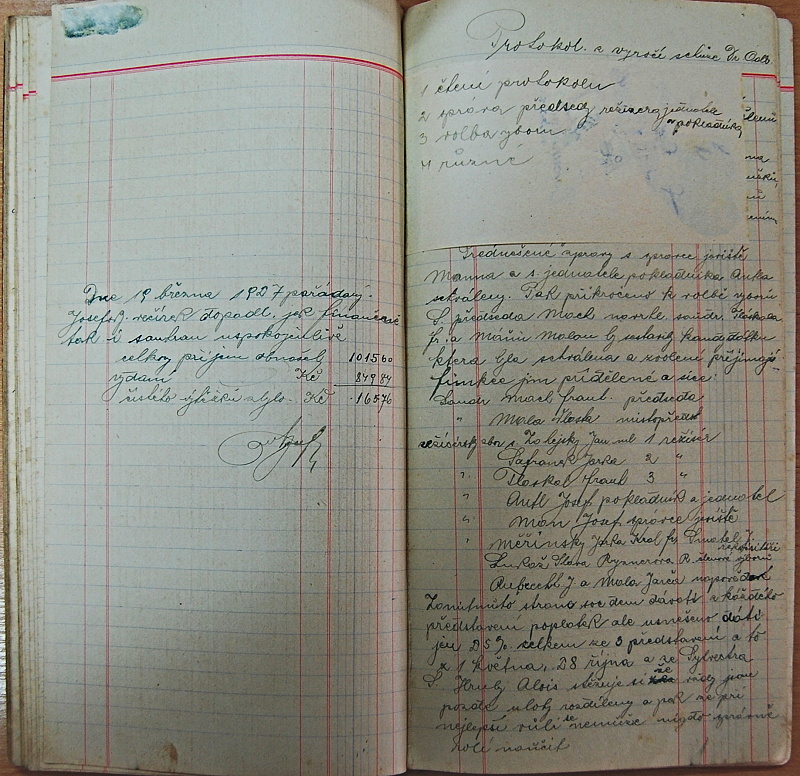 Dne 19 března 1927 pořádaný
Josefský večírek dopadl jak finančně
tak i souhrou uspokojitivě
celkový příjem obnášel 1015 60
vydání Kč 849 84
čistého výtěžku zbylo Kč 165 76
Protokol z výročí schůze Dr Odb.
1 čtení protokolu
2 zpráva předsedy režiséra jednatele
a pokladníka
3 volba vyboru
4 různé
Přednešené zprávy s správce jeviště
Manna a s. jednatele pokladníka Antla
schváleny. Pak přikročeno k volbě vyboru
S. předseda Mach navrhl soudr. Ploskala
fr. a Malou by sestavily kandydátku
která byla schválena a zvolení přijímají
funkce jim přidělené a sice:
Soudr Mach Frant. předseda
" Mala místopředsed
režisérský sbor s. Zalejský Jan ml 1 režisér
Šafranek Jarka 2 "
" Ploskal Frant 3 "
" Antl Josef pokladník a jednatel
" Man Josef správce jeviště
" Měřinsky Jarka Kral fr.
Lukaš Slava Ryznerova R. členové výboru
J. a Mala Jarča napověd
strana soc dem dávati z každého
představení poplatek ale usneseno dáti
jen 25% celkem ze 3 představení a to
z 1 května, 28 října a ze Sylvestra
S. Hrubý Alois stěžuje si že vždy jsou
pozdě ulohy rozdíleny a pak že při
nejlepší vůli se nemůže nikdo správně
roli naučit